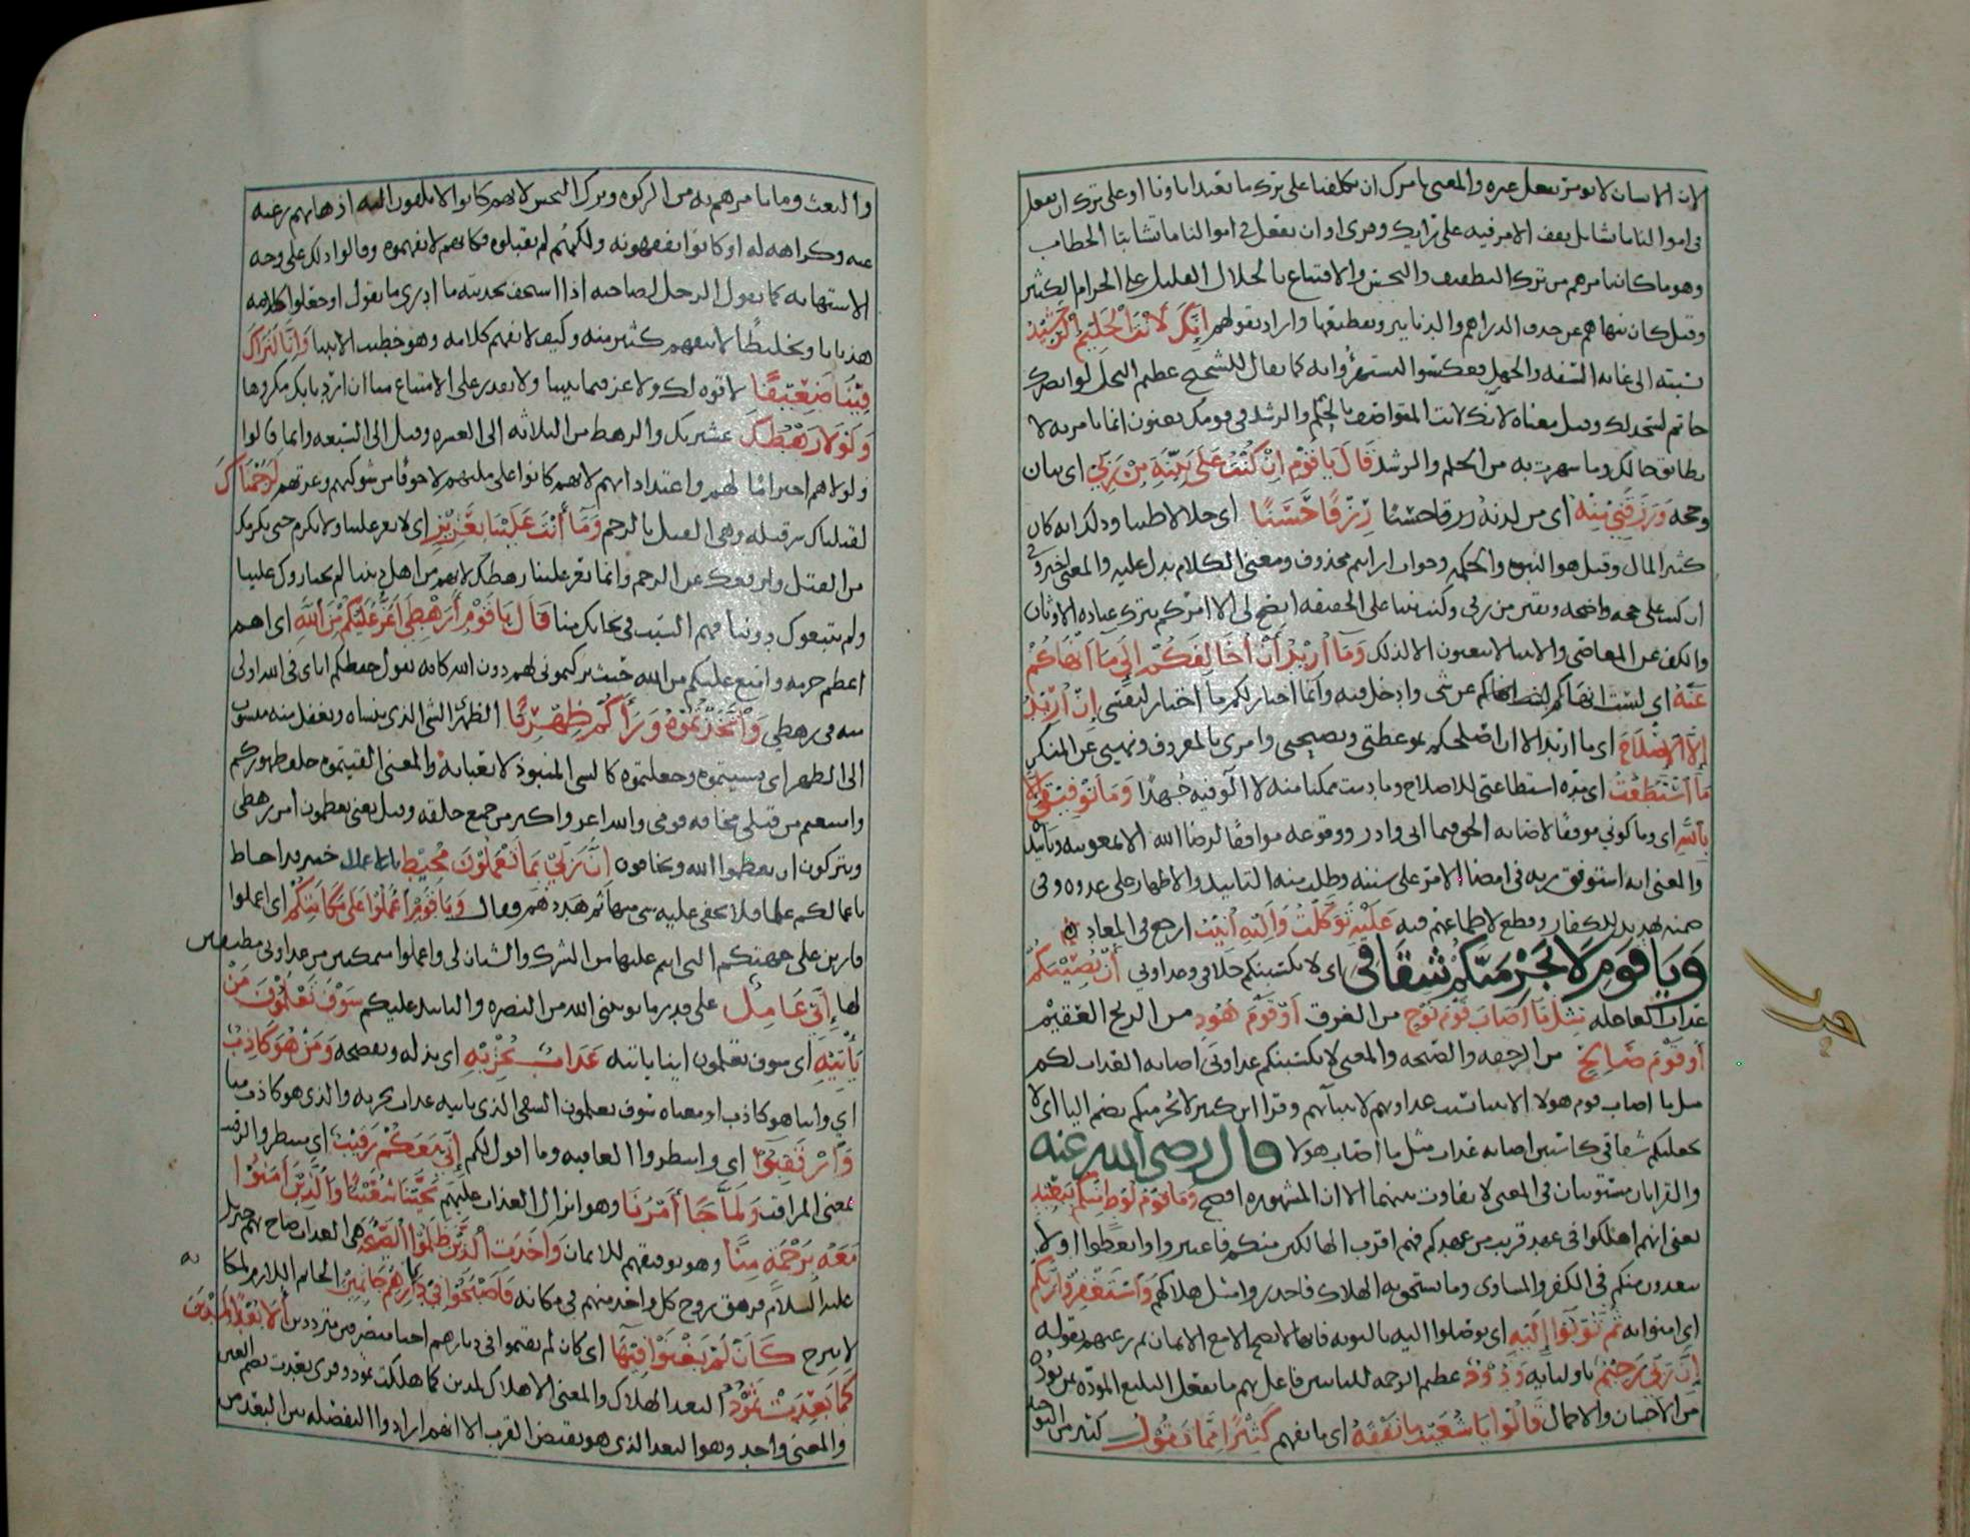 لان الانسان لا يومر بفعل غيره والمعنى تامرك ان تكلفنا على ترك ما يعبد اباونا او على ترك ان نفعل
في اموالنا ما نشا بل يقف الامر فيه على رايك وقرئ او ان تفعل في اموالنا ما تشا بتا الخطاب
وهو ما كان يامرهم من ترك التطفيف والبخس والاقتناع بالحلال القليل على الحرام الكثير
وقيل كان ينهاهم عن حذف الدراهم والدنانير وتقطيعها وارادوا بقولهم اِنَّكَ لَاَنْتَ الْحَلِيمُ الرَّشِيدُ
نسبته الى غاية السفه والجهل فعكسوا ليستهزؤا به كما يقال للشحيح عظيم البخل لو ابصرك
حاتم لسجد لك وقيل معناه لانك لانت المتواصف بالحلم والرشد في قومك يعنون انما تامر به لا
يطابق حالك وما شهرت به من الحلم والرشد قَالَ يَا قَوْمِ اِنْ كُنْتُ عَلَى بَيِّنَةٍ مِنْ رَبِّي اي بيان
وحجة وَرَزَقَنِي مِنْهُ اي من لدنه رزقا حسنا رِزْقًا حَسَنًا اي حلالا طيبا وذلك انه كان
كثير المال وقيل هو النبوة والحكمة وجواب ارايتم محذوف ومعنى الكلام يدل عليه والمعنى اخبروني
ان كنت على حجة واضحة ويقين من ربي وكنت نبيا على الحقيقة ايصح لي الا امركم بترك عبادة الاوثان
والكف عن المعاصي والانبيا لا يبعثون الا لذلك وَمَا اُرِيدُ اَنْ اُخَالِفَكُمْ اِلَى مَا اَنْهَاكُمْ
عَنْهُ اي لست انهاكم عن شي وادخل فيه وانما اختار لكم ما اختار لنفسي اِنْ اُرِيدُ
اِلَّا الْاِصْلَاحَ اي ما اريد الا ان اصلحكم بموعظتي ونصيحتي وامري بالمعروف ونهيي عن المنكر
مَا اسْتَطَعْتُ اي مدة استطاعتي للاصلاح وما دمت متمكنا منه لا الو فيه جهدا وَمَا تَوْفِيقِي اِلَّا
بِاللَّهِ اي وما كوني موفقا لاصابة الحق فيما اتي واذر ووقوعه موافقا لرضا الله الا بمعونته وتاييده
والمعنى انه استوفق ربه في امضا الامر على سننه وطلب منه التاييد والاظهار على عدوه وفي
ضمنه تهديد للكفار وقطع لاطماعهم فيه عَلَيْهِ تَوَكَّلْتُ وَاِلَيْهِ اُنِيبُ ارجع في المعاد
وَيَا قَوْمِ لَا يَجْرِمَنَّكُمْ شِقَاقِي اي لا يكسبنكم خلافي وعداوتي اَنْ يُصِيبَكُمْ
عذاب العاجلة مِثْلُ مَا اَصَابَ قَوْمَ نُوحٍ من الغرق اَوْ قَوْمَ هُودٍ من الريح العقيم
اَوْ قَوْمَ صَالِحٍ من الرجفة والصيحة والمعنى لا يكسبنكم عداوتي اصابة العذاب لكم
مثل ما اصاب قوم هولا الانبيا بسبب عداوتهم لانبيائهم وقرا ابن كثير لا يُجرمنكم بضم اليا اي لا
يجعلنكم شقاقي كاسبين اصابة عذاب مثل ما اصاب هولا قال رضي الله عنه
والقراءتان مستويتان في المعنى لا تفاوت بينهما الا ان المشهورة افصح وَمَا قَوْمُ لُوطٍ مِنْكُمْ بِبَعِيدٍ
يعني انهم اهلكوا في عهد قريب من عهدكم فهم اقرب الهالكين منكم فاعتبروا واتعظوا او لا
يبعدون منكم في الكفر والمساوي وما يستحق به الهلاك فاحذروا مثل هلاكهم وَاسْتَغْفِرُوا رَبَّكُمْ
اي امنوا به ثُمَّ تُوبُوا اِلَيْهِ اي توصلوا اليه بالتوبة فانها لا تصح الا مع الايمان ثم رغبهم بقوله
اِنَّ رَبِّي رَحِيمٌ باوليائه وَدُودٌ عظيم الرحمة للتائبين فاعل بهم ما يفعل البليغ المودة بمن يوده
من الاحسان والاجمال قَالُوا يَا شُعَيْبُ مَا نَفْقَهُ اي ما نفهم كَثِيرًا مِمَّا تَقُولُ كثير من التوحيد
والبعث وما تامرهم به من الزكوة وترك البخس لانهم كانوا لا يلقون اليه اذهانهم رغبة
عنه وكراهة له او كانوا يفقهونه ولكنهم لم يقبلوه فكانهم لم يفهموه وقالوا ذلك على وجه
الاستهانة كما يقول الرجل لصاحبه اذا استخف بحديثه ما ادري ما تقول او جعلوا كلامه
هذيانا وتخليطا لا ينفهم كثير منه وكيف لا نفهم كلامه وهو خطيب الانبيا وَاِنَّا لَنَرَاكَ
فِينَا ضَعِيفًا لا قوة لك ولا عز فيما بيننا ولا تقدر على الامتناع منا ان اردنا بك مكروها
وَلَوْلَا رَهْطُكَ عشيرتك والرهط من الثلاثة الى العشرة وقيل الى السبعة وانما قالوا
ولولاهم احتراما لهم واعتدادا بهم لانهم كانوا على ملتهم لا خوفا من شوكتهم وعزتهم لَرَجَمْنَاكَ
لقتلناك شر قتلة وهي القتل بالرجم وَمَا اَنْتَ عَلَيْنَا بِعَزِيزٍ اي لا تعز علينا ولا تكرم حتى نكرمك
من القتل ونرفعك عن الرجم وانما يعز علينا رهطك لانهم من اهل ديننا لم يختاروك علينا
ولم يتبعوك دوننا فهم السبب في نجاتك منا قَالَ يَا قَوْمِ اَرَهْطِي اَعَزُّ عَلَيْكُمْ مِنَ اللَّهِ اي اهم
اعظم حرمة وامنع عليكم من الله حيث تركتموني لهم دون الله كانه يقول حفظكم اياي في الله اولى
منه في رهطي وَاتَّخَذْتُمُوهُ وَرَاءَكُمْ ظِهْرِيًّا الظهري الشي الذي ينساه ويغفل عنه منسوب
الى الظهر اي نسيتموه وجعلتموه كالشي المنبوذ لا يعبا به والمعنى القيتموه خلف ظهوركم
وامتنعتم من قتلي مخافة قومي والله اعز واكبر من جميع خلقه وقيل يعني تعظمون امر رهطي
وتتركون ان تعظموا الله وتخافوه اِنَّ رَبِّي بِمَا تَعْمَلُونَ مُحِيطٌ خبير قد احاط
باعمالكم علما فلا يخفى عليه شي منها ثم هددهم وقال وَيَا قَوْمِ اعْمَلُوا عَلَى مَكَانَتِكُمْ اي اعملوا
قارين على جهتكم التي انتم عليها من الشرك والشنان لي واعملوا متمكنين من عداوتي مطيقين
لها اِنِّي عَامِلٌ على قدر ما يؤتيني الله من النصرة والتاييد عليكم سَوْفَ تَعْلَمُونَ مَنْ
يَأْتِيهِ اي سوف تعلمون اينا ياتيه عَذَابٌ يُخْزِيهِ اي يذله ويفضحه وَمَنْ هُوَ كَاذِبٌ
اي واينا هو كاذب او معناه سوف تعلمون الشقي الذي ياتيه عذاب يخزيه والذي هو كاذب منا
وَارْتَقِبُوا اي وانتظروا العاقبة وما اقول لكم اِنِّي مَعَكُمْ رَقِيبٌ اي منتظر والرقيب
بمعنى المراقب وَلَمَّا جَا اَمْرُنَا وهو انزال العذاب عليهم نَجَّيْنَا شُعَيْبًا وَالَّذِينَ اَمَنُوا
مَعَهُ بِرَحْمَةٍ مِنَّا وهو توفيقهم للايمان وَاَخَذَتِ الَّذِينَ ظَلَمُوا الصَّيْحَةُ هي العذاب صاح بهم جبريل
عليه السلام فزهق روح كل واحد منهم في مكانه فَاَصْبَحُوا فِي دِيَارِهِمْ جَاثِمِينَ الجاثم اللازم لمكانه
لا يبرح كَاَنْ لَمْ يَغْنَوْا فِيهَا اي كان لم يقيموا في ديارهم احيا متصرفين مترددين اَلَا بُعْدًا لِمَدْيَنَ
كَمَا بَعِدَتْ ثَمُودُ البعد الهلاك والمعنى الا هلاك لمدين كما هلكت ثمود وقرئ بعدت بضم العين
والمعنى واحد وهو البعد الذي هو نقيض القرب الا انهم ارادوا التفصلة بين البعد من